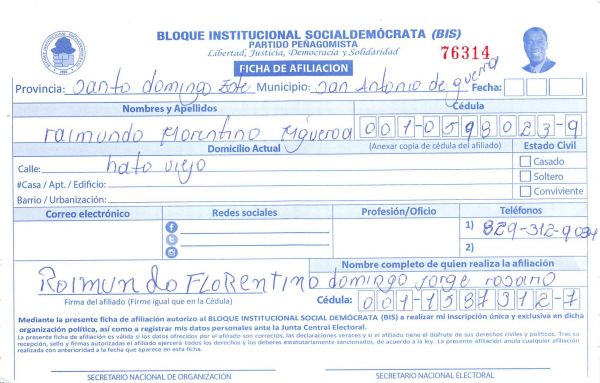 BLOQUE INSTITUCIONAL SOCIALDEMÓCRATA (BIS)
PARTIDO PEÑAGOMISTA
Libertad, Justicia, Democracia y Solidaridad
76314
FICHA DE AFILIACION
Provincia: Santo domingo Este Municipio: San Antonio de guerra Fecha:
Nombres y Apellidos Cédula
raimundo Florentino Figueroa 001-0598023-9
Domicilio Actual (Anexar copia de cédula del afiliado) Estado Civil
Calle: hato viejo Casado
#Casa / Apt. / Edificio: Soltero
Barrio / Urbanización: Conviviente
Correo electrónico Redes sociales Profesión/Oficio Teléfonos
1) 829-312-9034
2)
Nombre completo de quien realiza la afiliación
RaimunDo FLORentino domingo jorge rosario
Firma del afiliado (Firme igual que en la Cédula) Cédula: 001-1387312-7
Mediante la presente ficha de afiliación autorizo al BLOQUE INSTITUCIONAL SOCIAL DEMÓCRATA (BIS) a realizar mi inscripción única y exclusiva en dicha
organización política, así como a registrar mis datos personales ante la Junta Central Electoral.
La presente ficha de afiliación es válida si los datos ofrecidos por el afiliado son correctos, las declaraciones veraces y si el afiliado tiene el disfrute de sus derechos civiles y políticos. Tras su
recepción, sello y firmas autorizadas el afiliado ejercerá todos los derechos y los deberes estatutariamente sancionados, de acuerdo a la ley. La presente afiliación anula cualquier afiliación
realizada con anterioridad a la fecha que aparece en esta ficha.
SECRETARIO NACIONAL DE ORGANIZACIÓN SECRETARIO NACIONAL ELECTORAL